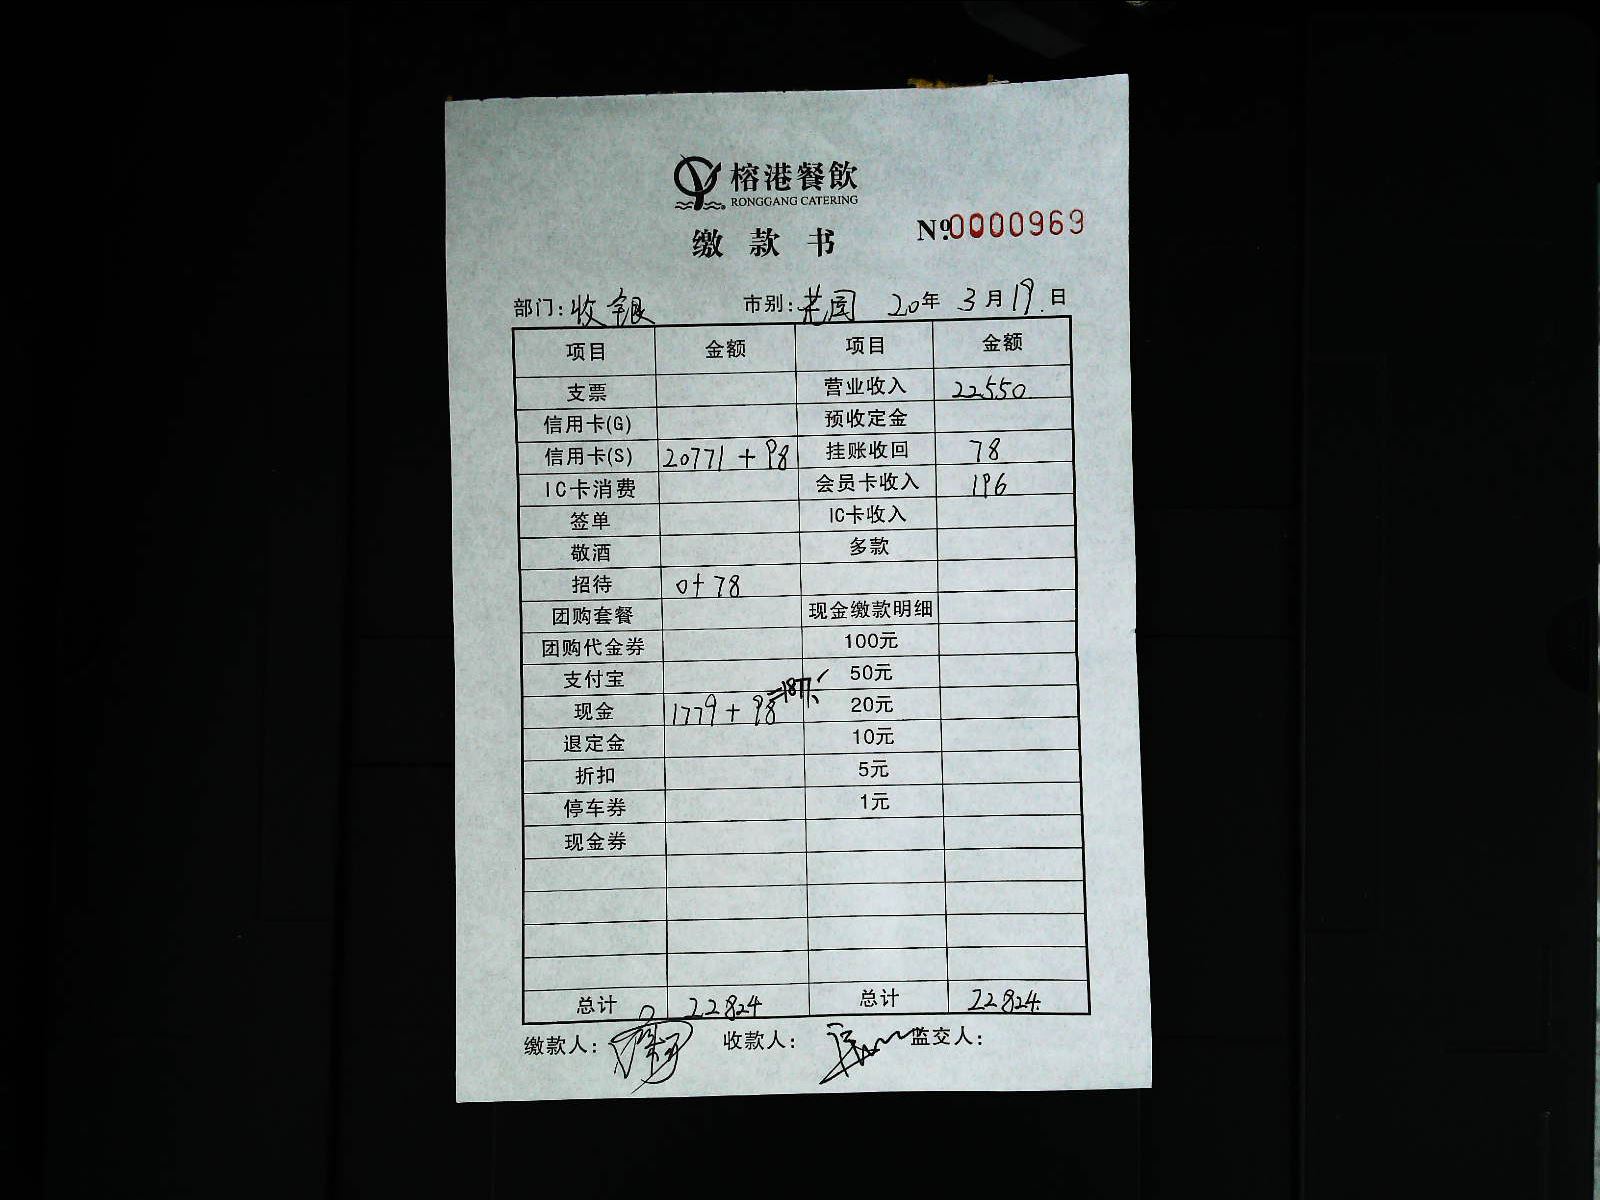 榕港餐飲
RONGGANG CATERING
缴款书 Nº.0000969
部门: 收银 市别: 20年 3月19日
项目 金额 项目 金额
支票 营业收入 22550
信用卡(G) 预收定金
信用卡(S) 20771 + 98 挂账收回 78
IC卡消费 会员卡收入 196
签单 IC卡收入
敬酒 多款
招待 0+78
团购套餐 现金缴款明细
团购代金券 100元
支付宝 50元
现金 1779 + 98 =1877. 20元
退定金 10元
折扣 5元
停车券 1元
现金券
总计 22824 总计 22824.
缴款人: 收款人: 监交人: